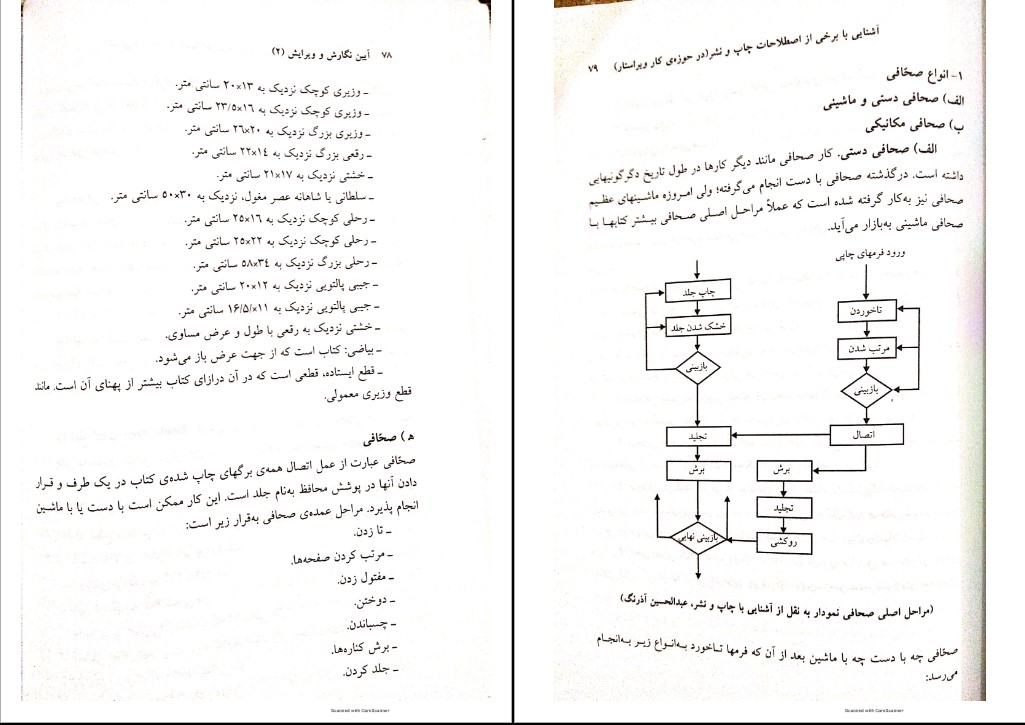 ۷۸ آیین نگارش و ویرایش (۲)
ـ وزیری کوچک نزدیک به ۱۳×۲۰ سانتی متر.
ـ وزیری کوچک نزدیک به ۱۶×۲۳/۵ سانتی متر.
ـ وزیری بزرگ نزدیک به ۲۰×۲۶ سانتی متر.
ـ رقعی بزرگ نزدیک به ۱۴×۲۲ سانتی متر.
ـ خشتی نزدیک به ۱۷×۲۱ سانتی متر.
ـ سلطانی یا شاهانه عصر مغول، نزدیک به ۳۰×۵۰ سانتی متر.
ـ رحلی کوچک نزدیک به ۱۶×۲۵ سانتی متر.
ـ رحلی کوچک نزدیک به ۲۲×۲۵ سانتی متر.
ـ رحلی بزرگ نزدیک به ۳۴×۵۸ سانتی متر.
ـ جیبی پالتویی نزدیک به ۱۲×۲۰ سانتی متر.
ـ جیبی پالتویی نزدیک به ۱۱×۱۶/۵ سانتی متر.
ـ خشتی نزدیک به رقعی با طول و عرض مساوی.
ـ بیاضی: کتاب است که از جهت عرض باز می‌شود.
ـ قطع ایستاده، قطعی است که در آن درازای کتاب بیشتر از پهنای آن است. مانند
قطع وزیری معمولی.
ه‍) صحّافی
صحّافی عبارت از عمل اتصال همه‌ی برگهای چاپ شده‌ی کتاب در یک طرف و قرار
دادن آنها در پوشش محافظ به‌نام جلد است. این کار ممکن است با دست یا با ماشین
انجام پذیرد. مراحل عمده‌ی صحافی به‌قرار زیر است:
ـ تا زدن.
ـ مرتب کردن صفحه‌ها.
ـ مفتول زدن.
ـ دوختن.
ـ چسباندن.
ـ برش کناره‌ها.
ـ جلد کردن.
Scanned with CamScanner
آشنایی با برخی از اصطلاحات چاپ و نشر(در حوزه‌ی کار ویراستار) ۷۹
۱- انواع صحّافی
الف) صحافی دستی و ماشینی
ب) صحافی مکانیکی
الف) صحافی دستی. کار صحافی مانند دیگر کارها در طول تاریخ دگرگونیهایی
داشته است. درگذشته صحافی با دست انجام می‌گرفته؛ ولی امروزه ماشینهای عظیم
صحافی نیز به‌کار گرفته شده است که عملاً مراحل اصلی صحافی بیشتر کتابها با
صحافی ماشینی به‌بازار می‌آید.
ورود فرمهای چاپی
تاخوردن
مرتب شدن
بازبینی
اتصال
چاپ جلد
خشک شدن جلد
بازبینی
تجلید
برش
بازبینی نهایی
برش
تجلید
روکشی
(مراحل اصلی صحافی نمودار به نقل از آشنایی با چاپ و نشر، عبدالحسین آذرنگ)
صحّافی چه با دست چه با ماشین بعد از آن که فرمها تاخورد به‌انواع زیر به‌انجام
می‌رسد:
Scanned with CamScanner